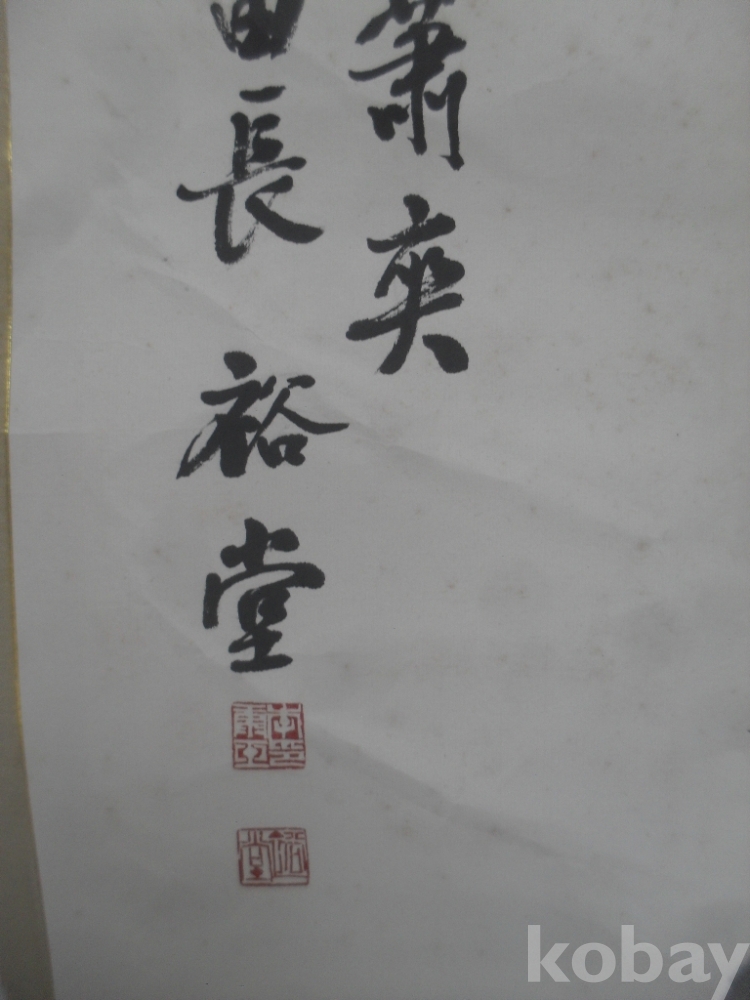 蕭爽
長裕堂
裕堂
kobay